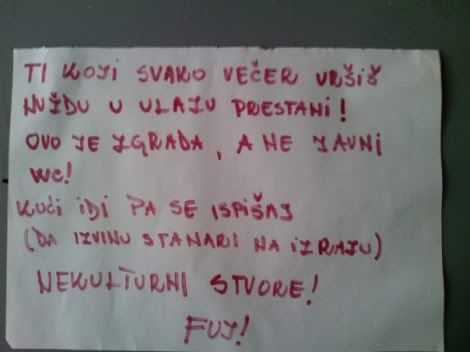 TI KOJI SVAKO VEČER VRŠIŠ
NUŽDU U ULAZU PRESTANI!
OVO JE ZGRADA, A NE JAVNI
WC!
KUĆI IDI PA SE ISPIŠAJ
(DA IZVINU STANARI NA IZRAZU)
NEKULTURNI STVORE!
FUJ!